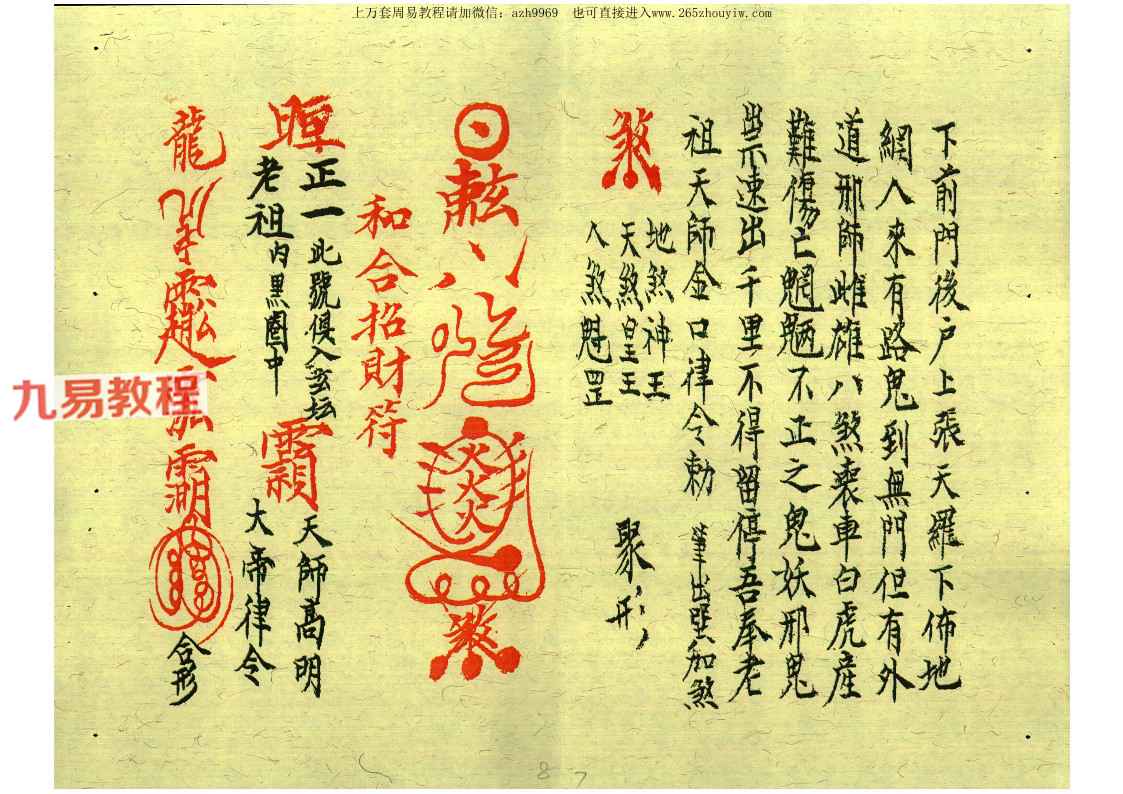 上万套周易教程请加微信：azh9969　也可直接进入www.265zhouyiw.com
下前門後户上張天羅下佈地
網人來有路鬼到無門但有外
道邪師雌雄八煞喪車白虎産
難傷亡魍魎不正之鬼妖邪鬼
出示速出千里不得留停吾奉老
祖天師金口律令勅
筆出罡和煞
煞
地煞神王
天煞皇王
八煞魁罡
聚形
煞
和合招財符
正一
此號俱入玄坛
老祖
内黒圈中
霸
天師高明
大帝律令
龍
合形
九易教程
8 7